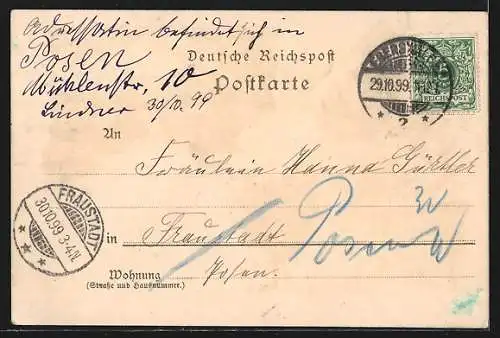 Adressatin befindet sich in
Posen
Mühlenstr. 10
Lindner 30/10 99
Deutsche Reichspost
Postkarte
29.10.99
REICHSPOST
An
Fräulein Hanna Gürtler
FRAUSTADT
30.10.99 3-4N.
in Fraustadt
Posen W
Wohnung Posen.
(Straße und Hausnummer.)